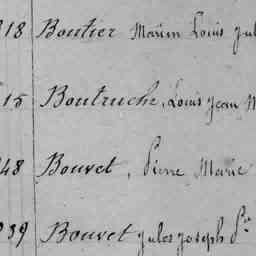 218 Boutier Marin Louis Jul
15 Boutruche, Louis Jean M
48 Bouvet, Pierre Marie
939 Bouvet Jules Joseph Pre